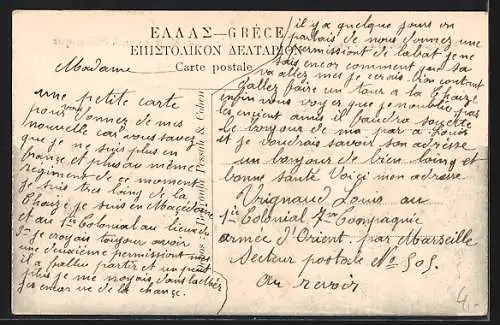 ΕΛΛΑΣ—GRÈCE
ΕΠΙΣΤΟΛΙΚΟΝ ΔΕΛΤΑΡΙΟΝ
Carte postale
Madame
une petite carte
pour vous donnez de mes
nouvelle car vous savez
que je ne suis plus en
france et plus au même
regiment de ce moment
je suis tres loing de la
Chaize je suis en Macedoine
et au 1ie Colonial au lieu du
5e je croyais toujour avoir
une deuxieme permission mes
il a pallu partir et un peut
plus je me noyais dans la mer
jes encor ue de la chance.
il y a quelque jours on
parlais de nous donnez une
permissiont de labat je ne
sais encor comment you sa
va allez mes je serais bon contant
dallez faire un tour a la Chaize
enfin vous voyer que je noublie pas
les encient amis il faudra souetez
Le bonjour de ma par a Louis
et je voudrais savoir son adresse
un bonjour de bien loing et
bonne santé Voici mon adresse
Vrignaud Louis au
1ie Colonial 7me Compagnie
armée d'Orient, par Marseille
Secteur postale No 505.
au revoir
Editeurs Benroubi Pessah & Cohen
4.